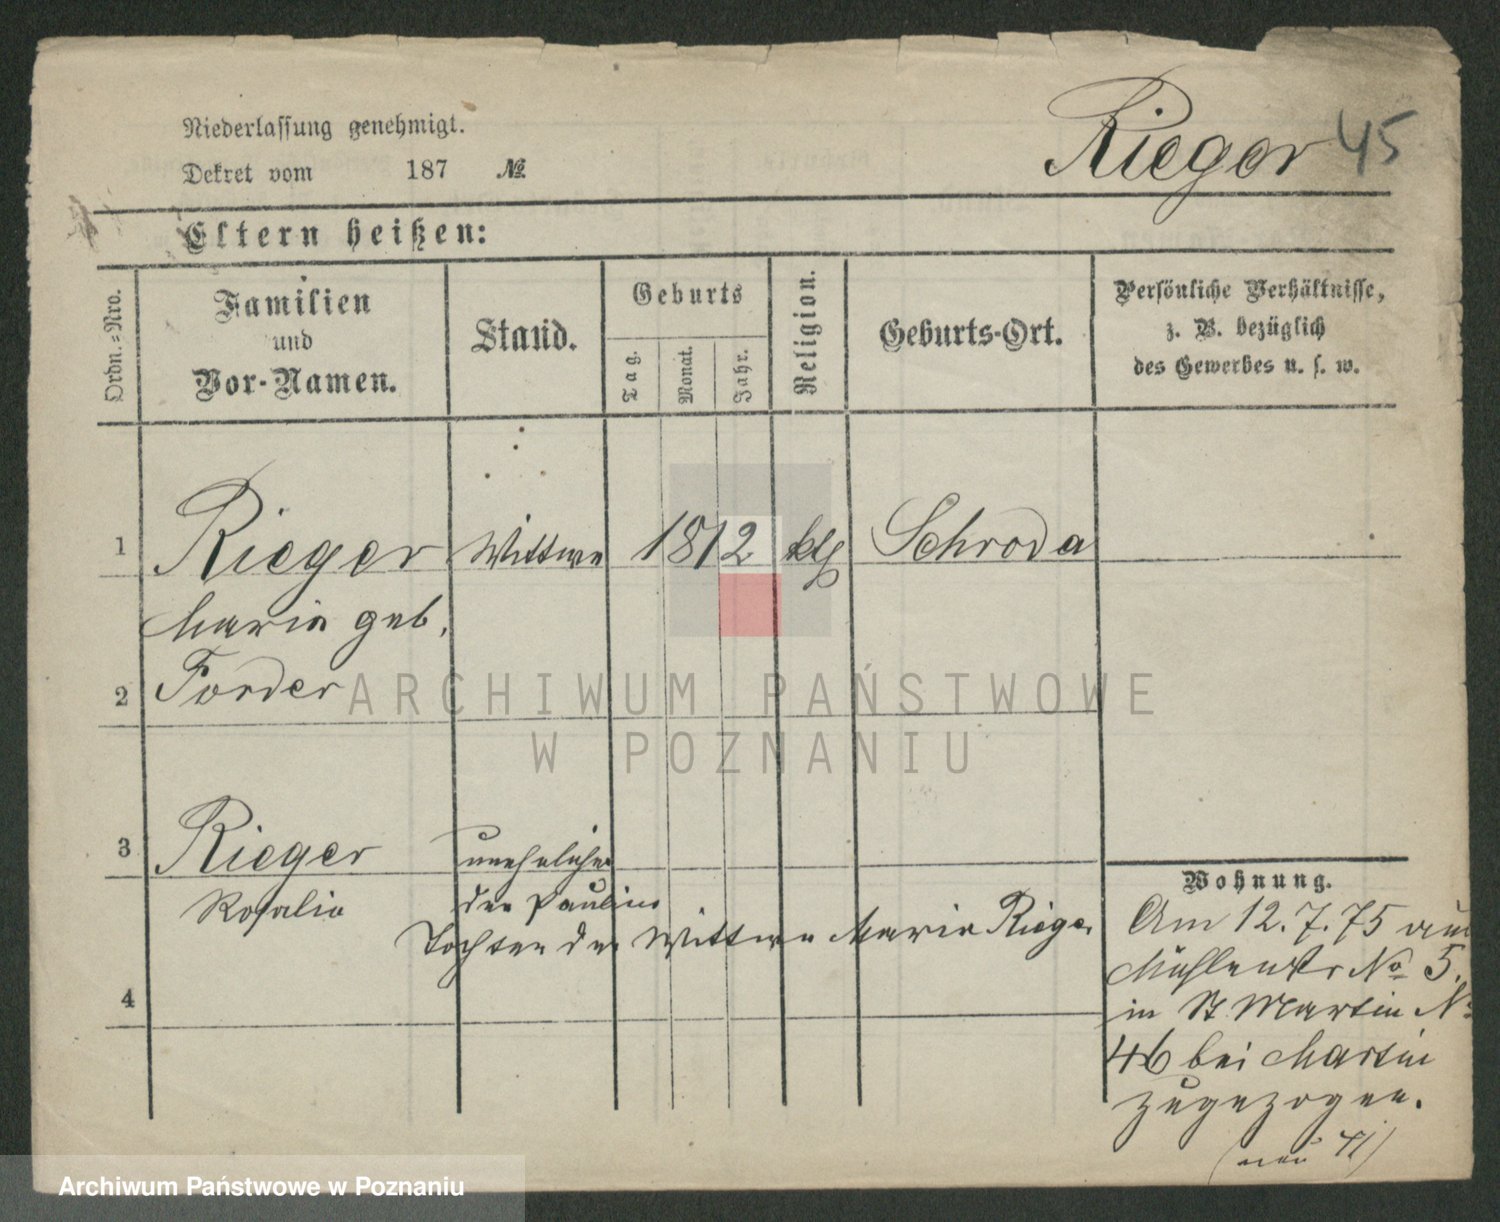 Niederlassung genehmigt.
Dekret vom 187 №
Rieger 45
Eltern heißen:
Ordn.-Nro.
Familien und Vor-Namen.
Stand.
Geburts
Tag.
Monat.
Jahr.
Religion.
Geburts-Ort.
Persönliche Verhältnisse,
z. B. bezüglich
des Gewerbes u. s. w.
1 Rieger Wittwe 1812 ktl Schroda
Maria geb.
2 Forder
ARCHIWUM PAŃSTWOWE
W POZNANIU
3 Rieger uneheliche
Rosalie der Pauline
Tochter der Wittwe Maria Rieger
4
Wohnung.
Am 12.7.75 aus
Mühlenstr No 5.
in St Martin No
46 bei Martin
zugezogen.
(neu 41)
Archiwum Państwowe w Poznaniu